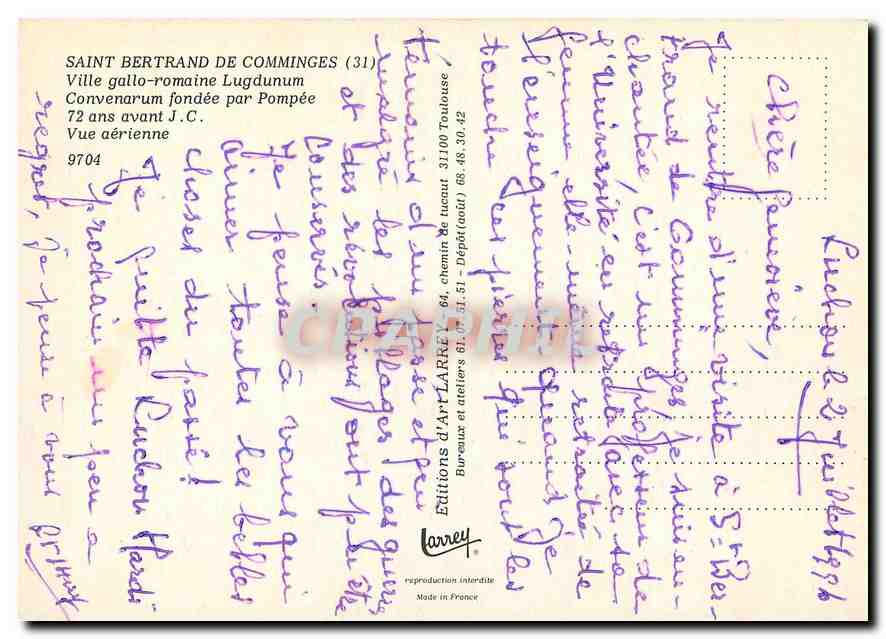 SAINT BERTRAND DE COMMINGES (31)
Ville gallo-romaine Lugdunum
Convenarum fondée par Pompée
72 ans avant J.C.
Vue aérienne
9704
Editions d'Art LARREY - 64, chemin de tucaut 31100 Toulouse
Bureaux et ateliers 61.07.51.51 - Dépôt (août) 68.48.30.42
Larrey
reproduction interdite
Made in France
CPAPHIL
Luchon le 2 Juillet 199
Chère Geneviève,
Je rentre d'une visite à St Ber-
trand de Comminges je suis en-
chantée, c'est un professeur de
l'Université en retraite avec sa
femme elle-même retraitée de
l'enseignement. quand je
touche ces pierres qui sont les
témoins d'un passé et
malgré les pillages des guerres
et des révolutions ont pu être
conservés
Je pense à vous qui
aimez toutes les belles
choses du passé!
Je quitte Luchon Mardi
prochain un peu à
regret, je pense à vous